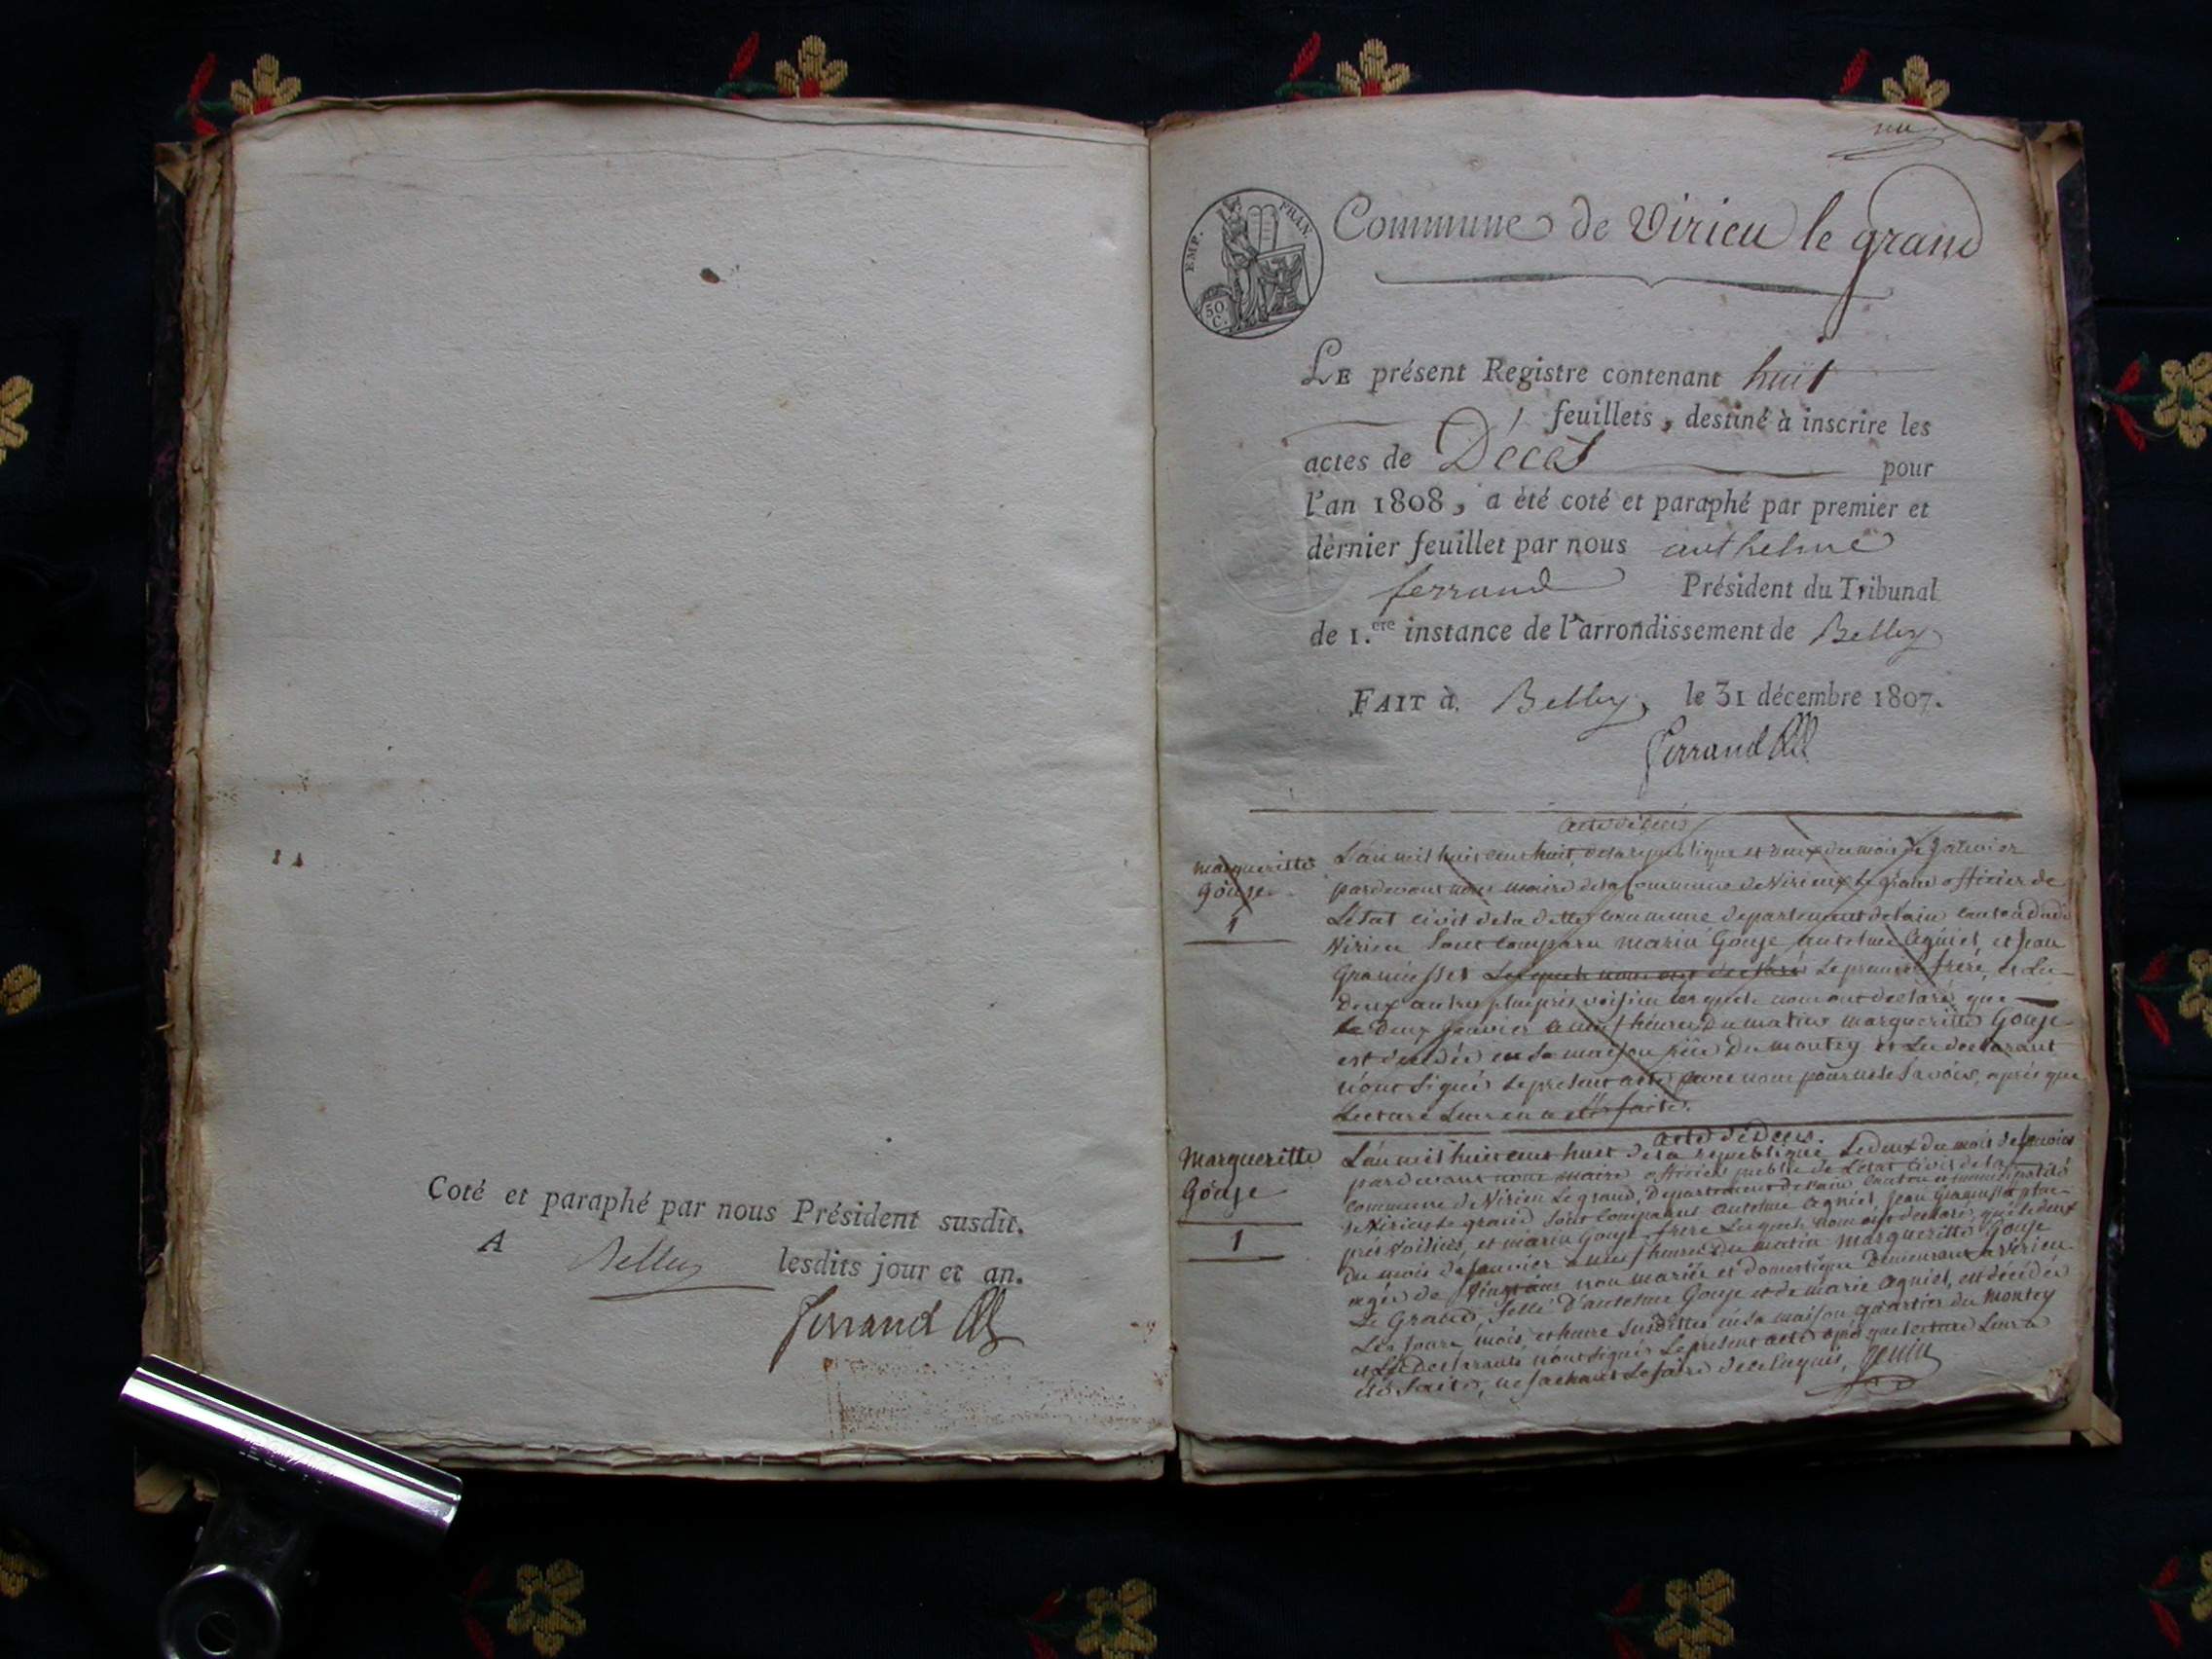 Coté et paraphé par nous Président susdit.
A Belley lesdits jour et an.
Ferrand
un
EMP. FRAN.
50
C.
Commune de Virieu le grand
LE présent Registre contenant huit
feuillets, destiné à inscrire les
actes de Décés pour
l'an 1808, a été coté et paraphé par premier et
dernier feuillet par nous anthelme
ferrand Président du Tribunal
de 1.ere instance de l'arrondissement de Belley
FAIT à Belley, le 31 décembre 1807.
Ferrand
acte de décés
margueritte
Gouje
1
L'an mil huit cent huit de la republique et deux du mois de Janvier
pardevant nous maire de la Commune de Virieux le grand officier de
L'état civil de la ditte commune departement de l'ain canton dudi
Virieu Sont comparu marin Gouje antelme Agniel, et Jean
Lesquels nous ont déclaré Le premier frére, et Les
Deux autres plus prés voisin lesquels nous ont declaré que
Le Deux Janvier a neuf heures Du matin margueritte Gouje
est décédée en Sa maison rüe Du montey et Les declarant
n'ont Signés Le present acte avec nous pour ne le Savoir, aprés que
Lecture Leur en a été faite.
acte de décés.
Margueritte
Gouje
1
L'an mil huit cent huit de la republique Le deux du mois de Janvier
pardevant nous maire officier public de L'état civil de la
commune de Virieu Le grand, Departement de l'ain canton et municipalité
de Virieu Le grand Sont Comparus antelme Agniel Jean plus
prés Voisins, et marin Gouje frere Lesquels nous ont declaré, que le deux
du mois de Janvier a neuf heures du matin Margueritte Gouje
agée de Vingt ans non mariée et domestique Demeurant a Virieu
Le Grand, fille D'antelme Gouje et de marie Agniel, est décédée
Les jour, mois et heure Susdittes en Sa maison quartier du Montey
et Les Declarants n'ont Signés Le present acte aprés que lecture Leur a
été faite, ne Sachant Le faire de ce enquis, Genin